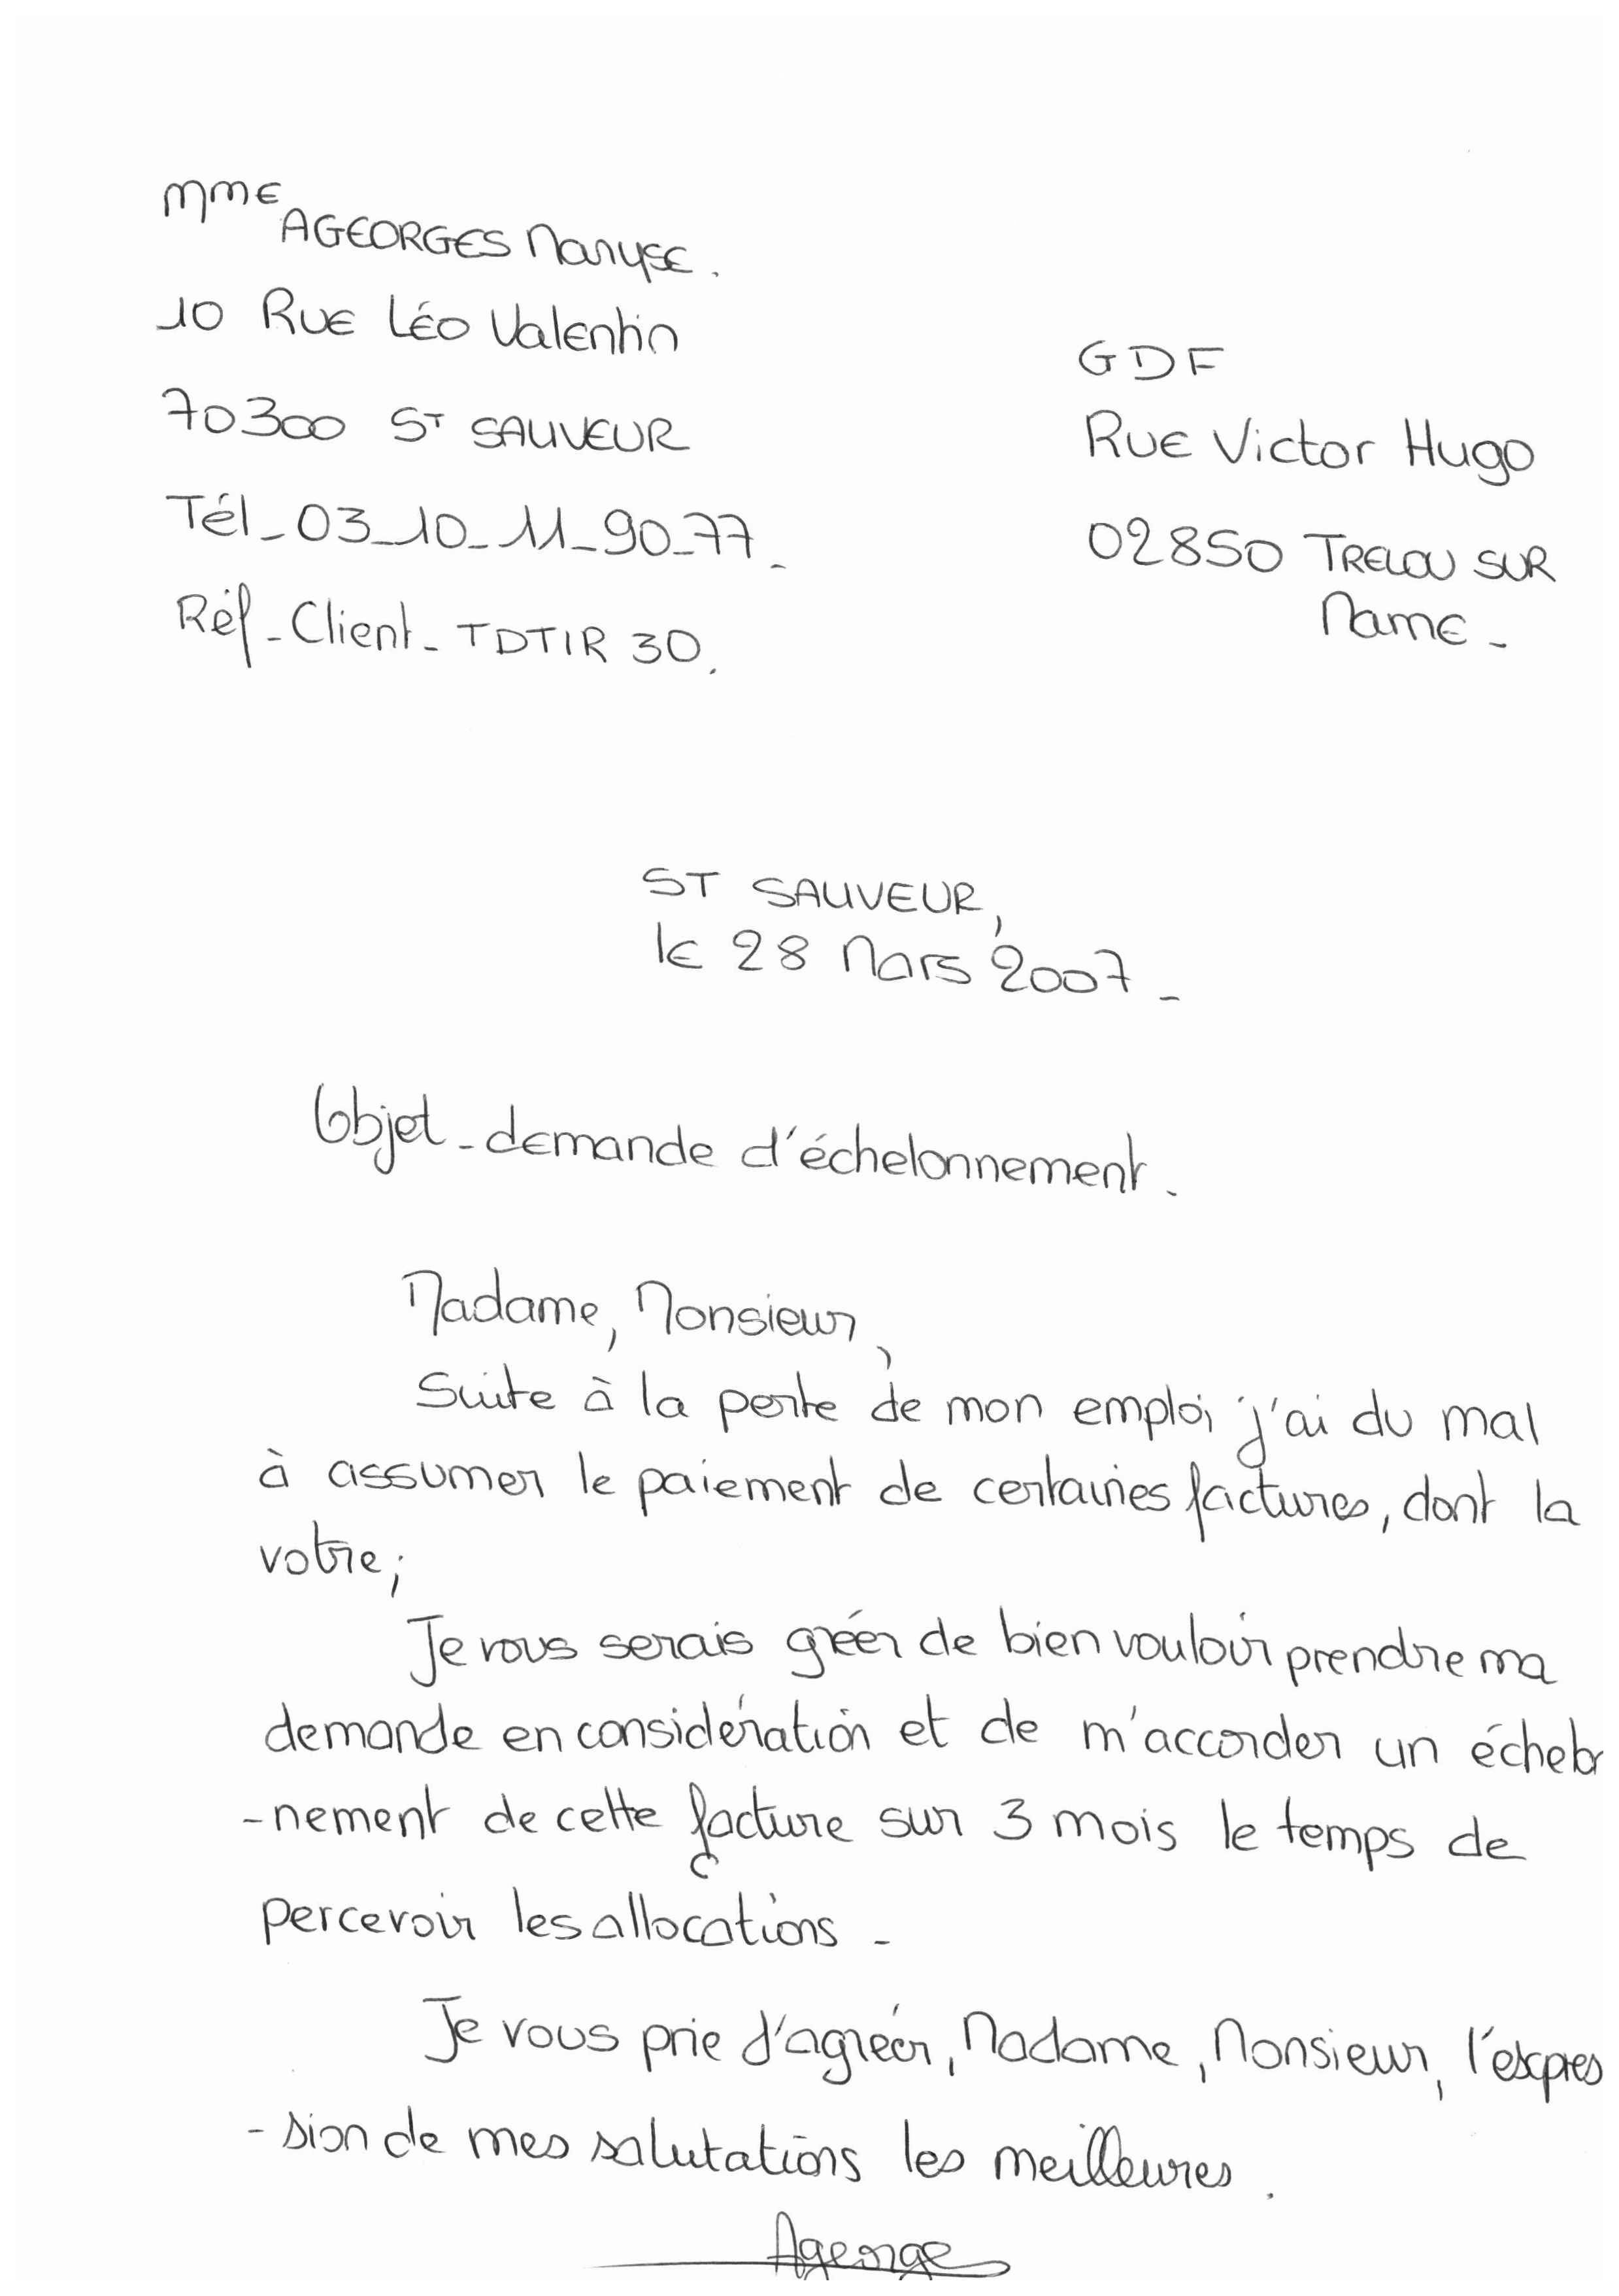 Mme AGEORGES Maryse.
10 Rue Léo Valentin
70300 ST SAUVEUR
Tél_03_10_11_90_77_
Réf_Client_TDTIR 30.
GDF
Rue Victor Hugo
02850 TRELOU SUR
Marne_
ST SAUVEUR,
le 28 Mars 2007_
Objet_demande d'échelonnement.
Madame, Monsieur,
Suite à la perte de mon emploi j'ai du mal
à assumer le paiement de certaines factures, dont la
votre;
Je vous serais gréer de bien vouloir prendre ma
demande en considération et de m'accorder un échelon
-nement de cette facture sur 3 mois le temps de
percevoir les allocations_
Je vous prie d'agréer, Madame, Monsieur, l'expres
-sion de mes salutations les meilleures.
Ageorge